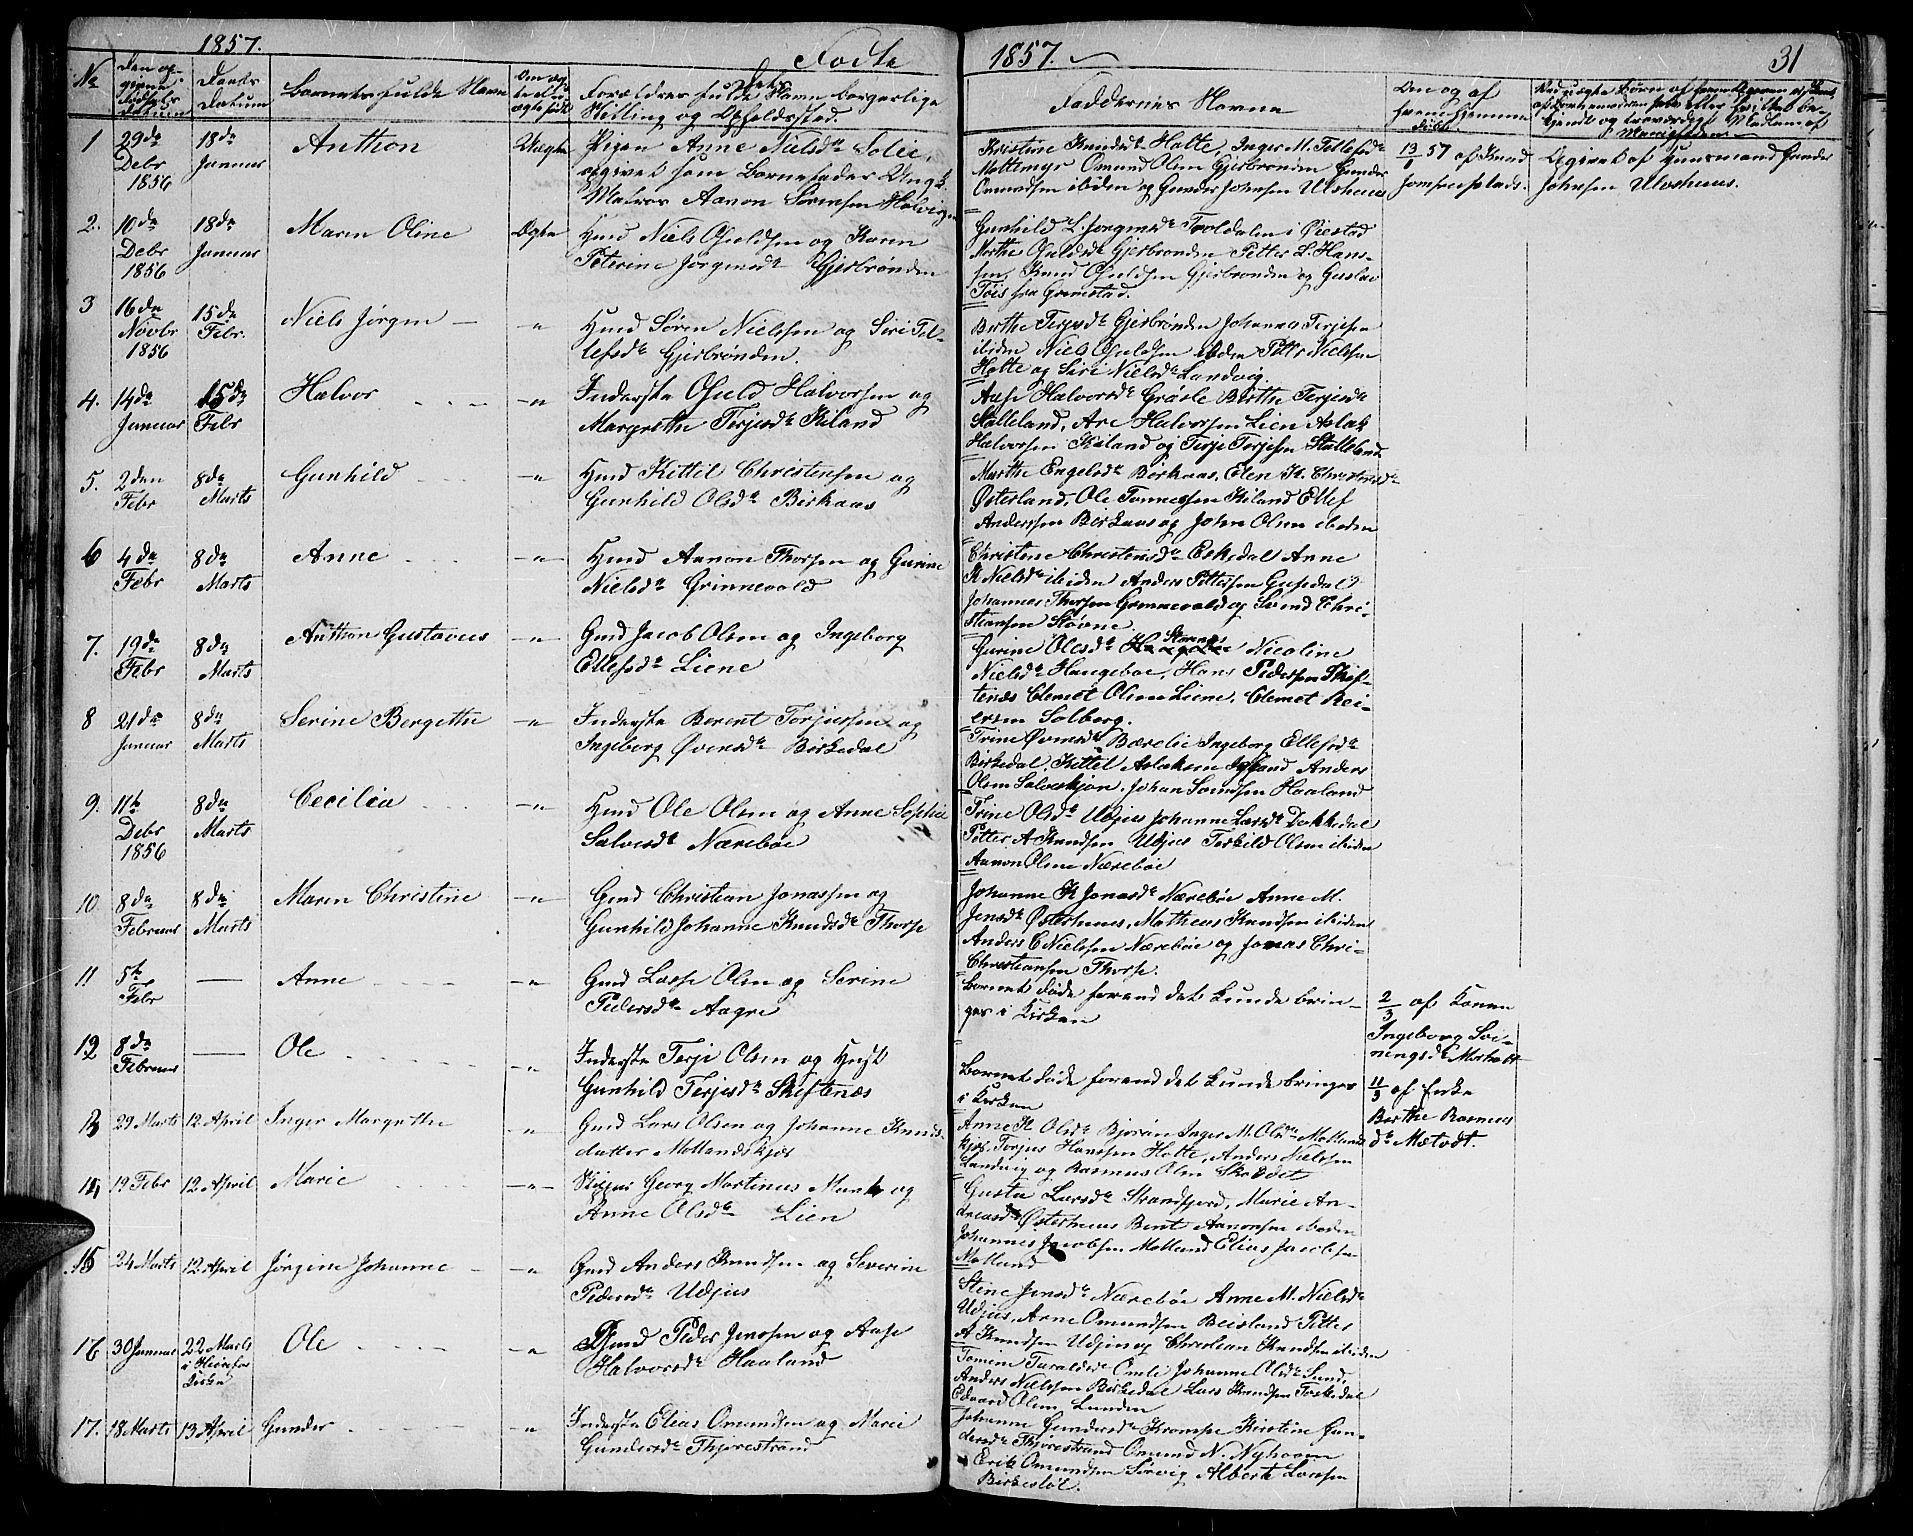 1857.
Fødte
1857.
31
No
Den op-
givne
Fødsels
Datum
Daabs
Datum
Barnets fulde Navn
Om æg-
te el. u-
ægte født
Forældres fulde Navn borgerlige
Stilling og Opholdssted.
Faddernes Navne
1
29de
Debr
1856
18de
Januar
Anthon
Uægte
Pigen Anne Nielsdr Solie,
opgivet som Barnefader Ungk.
Matros Aanon Sørensen
Kirstine Knudsdr Holte, Inger M. Tellefsdr
Moltemyr Omund Olsen Gjerbrønden Gunder
Omundsen ibiden og Gunder Johnsen Ulvshuus
13/1 57 af Knud
Jomfruplads.
Opgivet af Huusmand Gunder
Johnsen Ulvshuus.
2.
10de
Debr
1856
18de
Januar
Maren Oline
Ægte
Gmd Niels Osuldsen og Karen
Peterine Jørgensdr Gjerbrønden
Gunhild L. Jørgensdr Troldalen i Øiestad
Marthe Osuldsdr Gjerbrønden Petter L. Hans-
sen, Knud Osuldsen Gjerbrønden og Gustav
Tøis fra Grimstad.
3
16de
Novbr
1856
15de
Febr.
Niels Jørgen
Hmd Søren Nielsen og Siri Tel-
lefsdr Gjerbrønden.
Berthe Terjesdr Gjerbrønden Johannes Terjesen
ibiden Niels Osuldsen ibden Petter Nielsen
Holte og Siri Nielsdr Landvig.
4.
14de
Januar
15de
Febr
Halvor
Inderste Osuld Halvorsen og
Margrethe Terjesdr Kiland
Aase Halvorsdr Grøsle Berthe Terjesdr
Stalleland, Are Halvorsen Lien Aslak
Halvorsen Kiland og Terje Terjesen Stalleland
5.
2den
Febr
8de
Marts
Gunhild
Hmd Kittil Christensen og
Gunhild Olsdr Birkaas
Marthe Engelsdr Birkaas, Elen K. Christensdr
Østerland, Ole Tønnesen Kiland Ellef
Anderssen Birkaas og John Olsen ibiden
6
4de
Febr
8de
Marts
Anne
Hmd Aanon Thorsen og Gurine
Nielsdr Grinnevold
Christine Christensdr Eskedal Anne
K. Nielsdr ibiden Anders Pettersen Gusedal
Johannes Thorsen Grennevold og Svend Chri-
stiansen Støvne
7.
19de
Febr
8de
Marts
Anthon Gustavus
Gmd Jacob Olsen og Ingeborg
Ellefsdr Liene
Gurine Olesdr Nicoline
Nielsdr Haugeboe, Hans Pedersen Skif-
tenæs Clemet Olsen Liene, Clemet Rei-
ersen Solberg.
8
21de
Januar
8de
Marts
Serine Bergette
Inderste Berent Torjussen og
Ingeborg Øvensdr Birkedal
Trine Øvensdr Bærelie Ingeborg Ellefsdr
Birkedal, Kittel Aslaksen Igland Anders
Olsen Salveskjon, Johan Svendsen Haaland
9.
11te
Debr
1856
8de
Marts
Cecilia
Hmd Ole Olsen og Anne Sophie
Salvesdr Nærebøe
Trine Olsdr Udjus Johanne Larsdr Dokkedal
Petter A. Knudsen Udjus Terkild Olsen ibiden
Aanon Olsen Nærebøe
10
8de
Februar
8de
Marts
Maren Christine
Gmd Christian Jonassen og
Gunhild Johanne Knudsdr Thorse
Johanne K. Jonasdr Nærebøe Anne M.
Jensdr Østerhuus, Matheus Knudsen ibiden
Anders C Nielsen Nærebøe og Jonas Chri-
Christiansen Thorse.
11
5te
Febr
Anne
Gmd Lasse Olsen og Serine
Pedersdr Aagre
Barnet døde forend det kunde brin-
ges i Kirken
2/3 af Konen
Ingeborg Svei-
nungsdr
12
8de
Februar
Ole
Inderste Terje Olsen og Hust
Gunhild Terjesdr Skiftenæs
Barnet døde forend det kunde bringes
i Kirken
11/3 af Enke
Berthe Rasmus
dr Metvedt.
13
29 Marts
12 April
Inger Margrethe
Gmd Lars Olsen og Johanne Knuds-
datter Mollandskjær
Anne K. Olsdr Bjoraa Inger M. Olsdr Mollands
kjær, Torjus Hanssen Holte, Anders Nielsen
Landvig og Rasmus Olsen
14
19 Febr
12 April
Marie
Georg Martinus Munk og
Anne Olsdr Lien
Gusta Larsdr Strandfjord, Marie An-
dreasdr Østerhuus Bent Aanonsen ibiden
Johannes Jacobsen Molland Elias Jacobsen
Molland
15
24 Marts
12 April
Jørgine Johanne
Gmd Anders Knudsen og Severine
Pedersdr Udjus
Stine Jensdr Nærebøe Anne M. Nielsdr
Udjus, Arne Omundsen Beisland Petter
A Knudsen Udjus og Christian Knudsen ibiden
16
30 Januar
22 Marts
i
Kirke
Ole
Gmd Peder Jenssen og Aase
Halvorsdr Haaland
Tomine Taraldsdr Omli Johanne Olsdr Sund,
Anders Nielsen Birkedal Lars Knudsen
Edvard Olsen Lunden
17.
18 Marts
13 April
Gunder
Inderste Elias Omundsen og Marie
Gundersdr Thjorestrand
Johanne Gundersdr Krompe Kirstine Gun-
dersdr Thjorestrand Omund N. Nyhaven
Erik Omundsen Sørvig, Albert Larsen
Birkestøl.